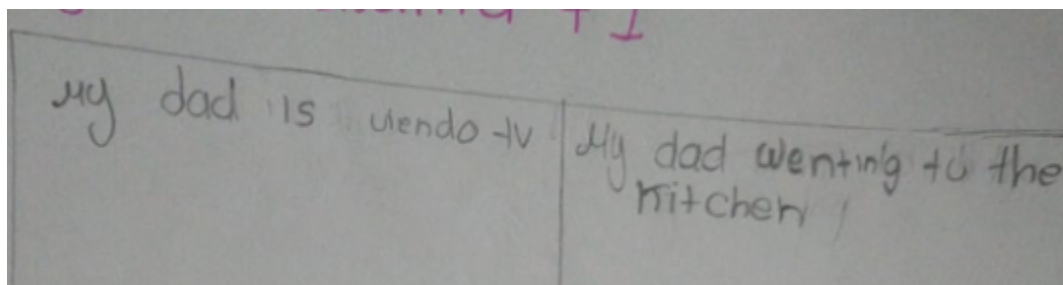 +1
My dad is viendo tv
My dad wenting to the
kitchen